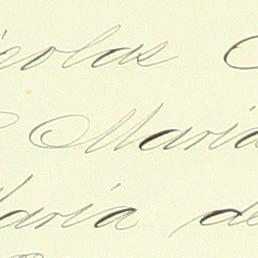 icolas
Maria
Maria de